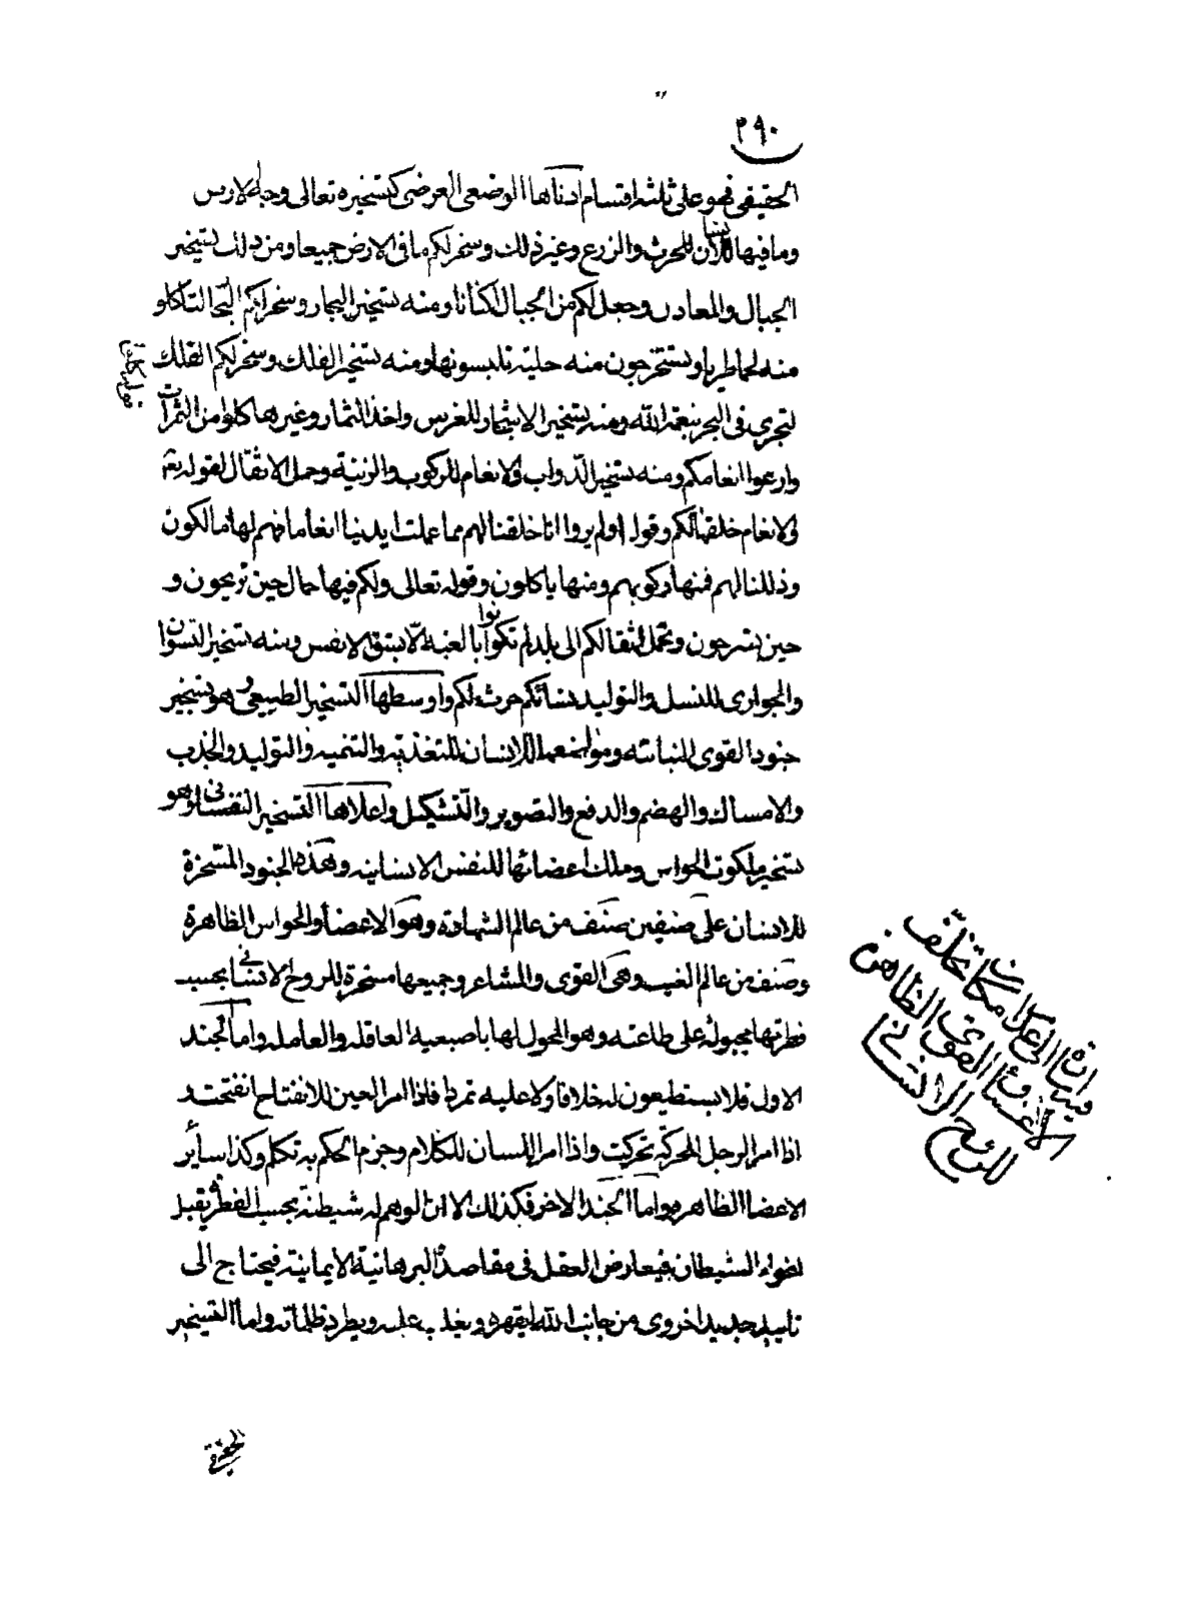 ٢٩٠
الحقيقى فهو على ثلثة اقسام ادناها الوضعى العرضى كتسخيره تعالى وجه الارض
وما فيها للانسان للحرث والزرع وغير ذلك وسخر لكم ما فى الارض جميعا ومن ذلك تسخير
الجبال والمعادن وجعل لكم من الجبال اكنانا ومنه تسخير البحار وسخر لكم البحر لتاكلوا
منه لحما طريا وتستخرجون منه حلية تلبسونها ومنه تسخير الفلك وسخر لكم الفلك
لتجرى فى البحر بنعمة الله ومنه تسخير الاشجار للغرس واخذ الثمار وغيرها كلوا من الثمرات
وارعوا انعامكم ومنه تسخير الدواب والانعام للركوب والزينة وحمل الاثقال لقوله تع
والانعام خلقها لكم وقوله اولم يروا انا خلقنا لهم مما عملت ايدينا انعاما فهم لها مالكون
وذللنا لهم فمنها ركوبهم ومنها ياكلون وقوله تعالى ولكم فيها جمال حين تريحون و
حين تسرحون وتحمل اثقالكم الى بلد لم تكونوا بالغيه الّا بشق الانفس ومنه تسخير النسوان
والجوارى للنسل والتوليد نسائكم حرث لكم واوسطها التسخير الطبيعى وهو تسخير
جنود القوى النباتيه ومواضعها للانسان للتغذيه والتنميه والتوليد والجذب
والامساك والهضم والدفع والتصوير والتشكيل واعلاها التسخير النفسانى وهو
تسخير ملكوت الحواس وملك اعضائها للنفس الانسانيه وهذه الجنود المسخرة
للانسان على صنفين صنف من عالم الشهادة وهو الاعضا والحواس الظاهرة
وصنف من عالم الغيب وهى القوى والمشاعر وجميعها مسخرة للروح الانسانى بحسب
فطرتها مجبولة على طاعته وهو المحول لها باصبعيه العاقله والعامله واما الجند
الاول فلا يستطيعون له خلافا ولا عليه تمردا فاذا امر العين للانفتاح انفتحت
اذا امر الرجل للحركة تحركت واذا امر اللسان للكلام وجزم الحكم به تكلم وكذا ساير
الاعضا الظاهره واما الجند الاخر فكذلك الا ان الوهم له شيطنة بحسب الفطرة يقبل
اغواء الشيطان فيعارض العقل فى مقاصده البرهانية الايمانية فيحتاج الى
تاييد جديد اخروى من جانب الله ليقهره ويغلب عليه ويطرد ظلماته واما التسخير
فيها اشارة الى عدم امكان تخلف
الاعضا و القوى الظاهره
للروح الانسانى